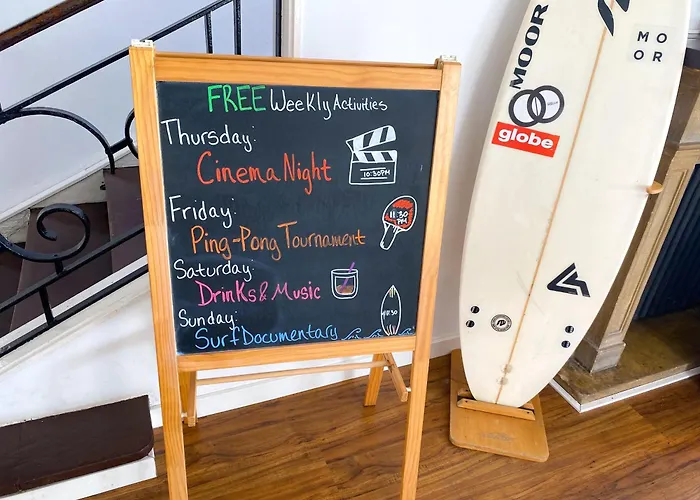 FREE Weekly Activities
Thursday:
Cinema Night
10:30PM
Friday:
Ping-Pong Tournament
11:30
PM
Saturday:
Drinks & Music
Sunday:
Surf Documentary
MOOR
globe
MO
OR